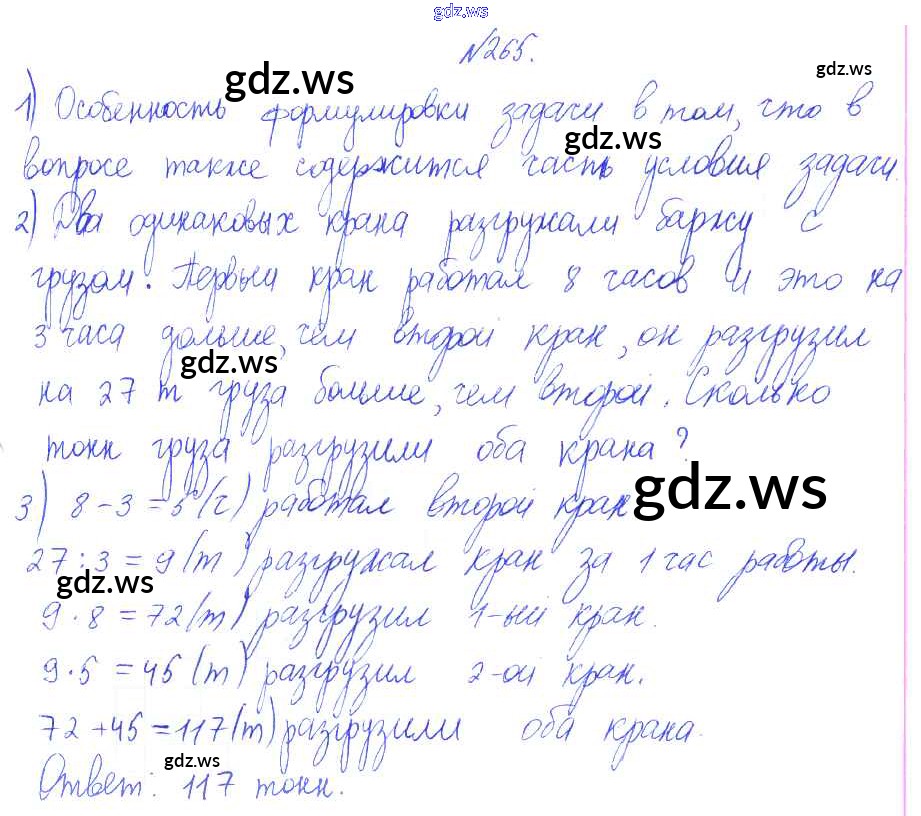 gdz.ws
№265.
gdz.ws
gdz.ws
1) Особенность формулировки задачи в том, что в
gdz.ws
вопросе также содержится часть условия задачи.
2) Два одинаковых крана разгружали баржу с
грузом. Первый кран работал 8 часов и это на
3 часа дольше, чем второй кран, он разгрузил
gdz.ws
на 27 т груза больше, чем второй. Сколько
тонн груза разгрузили оба крана?
gdz.ws
3) 8-3=5 (ч) работал второй кран
27:3=9 (т) разгружал кран за 1 час работы.
gdz.ws
9·8=72 (т) разгрузил 1-ый кран.
9·5=45 (т) разгрузил 2-ой кран.
72+45=117 (т) разгрузили оба крана.
gdz.ws
Ответ: 117 тонн.